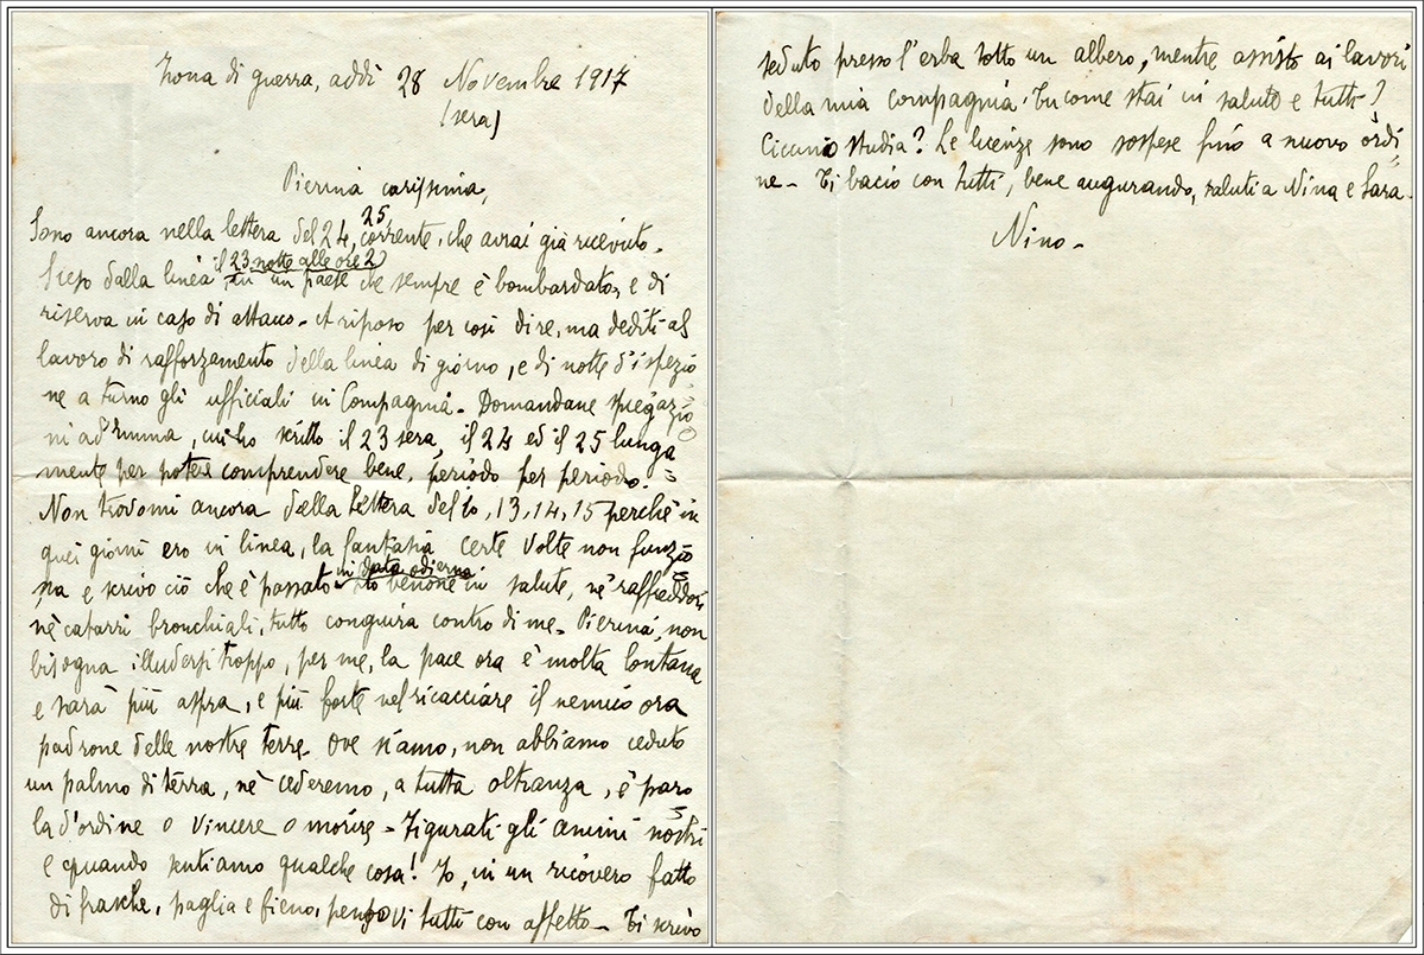 Zona di guerra, addì 28 Novembre 1917
(sera)
Pierina carissima,
Sono ancora nella lettera del 24, 25, corrente, che avrai già ricevuto.
Sceso dalla linea il 23 notte alle ore 2 in un paese che sempre è bombardato, e di
riserva in caso di attacco. A riposo per così dire, ma dediti al
lavoro di rafforzamento della linea di giorno, e di notte d'ispezio
ne a turno gli ufficiali in Compagnia. Domandane spiegazio
ni ad Emma, cui ho scritto il 23 sera, il 24 ed il 25 lunga
mente per potere comprendere bene, periodo per periodo.
Non trovomi ancora della lettera del 10, 13, 14, 15 perchè in
quei giorni ero in linea, la fantasia certe volte non funzio
na e scrivo ciò che è passato in data odierna sto benone in salute, nè raffreddori
nè catarri bronchiali, tutto congiura contro di me. Pierina, non
bisogna illudersi troppo, per me, la pace ora è molto lontana
e sarà più aspra, e più forte nel ricacciare il nemico ora
padrone delle nostre terre. Ove siamo, non abbiamo ceduto
un palmo di terra, nè cederemo, a tutta oltranza, è paro
la d'ordine o vincere o morire. Figurati gli animi nostri
e quando sentiamo qualche cosa! Io, in un ricovero fatto
di frasche, paglia e fieno, pensovi tutti con affetto. Ti scrivo
seduto presso l'erba sotto un albero, mentre assisto ai lavori
della mia compagnia. Tu come stai in salute e tutti?
Ciccino studia? Le licenze sono sospese fino a nuovo ordi
ne. Ti bacio con tutti, bene augurando, saluti a Nina e Sara.
Nino.